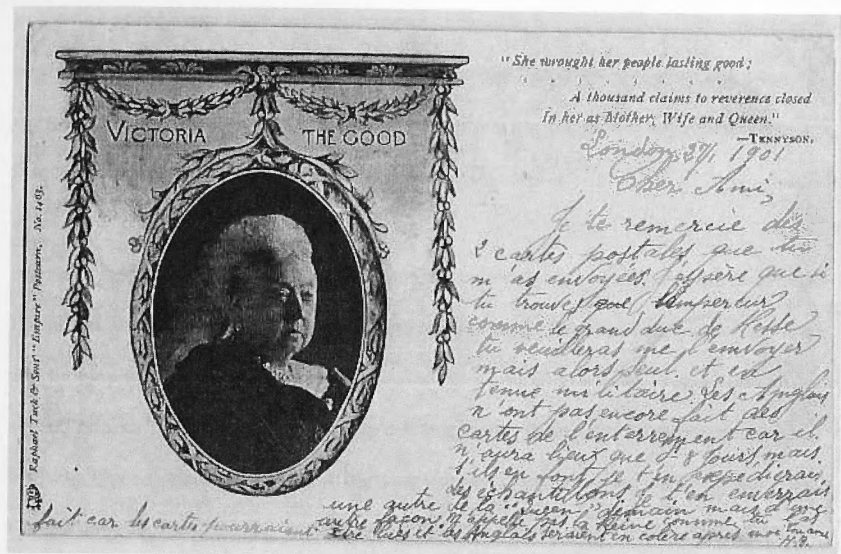 "She wrought her people lasting good;
A thousand claims to reverence closed
In her as Mother, Wife and Queen."
—TENNYSON.
VICTORIA THE GOOD
Raphael Tuck & Sons' "Empire" Postcard, No. 1403.
London 27/1 1901
Cher Ami,
Je te remercie des
2 cartes postales que tu
m'as envoyées. J'espère que si
tu trouves que l'empereur
comme le grand duc de Hesse
tu veuilleras me l'envoyer
mais alors seul et en
tenue militaire. Les Anglais
n'ont pas encore fait des
cartes de l'enterrement car il
n'aura lieux que d. 8 jours, mais
s'ils en font je t'en expedierai
des échantillons. Je t'en enverrais
une autre de la "Queen" demain mais d'une
autre façon. N'appelle pas la Reine comme tu as
fait car les cartes pourraient être lues et les Anglais seraient en colère après moi
H.B.